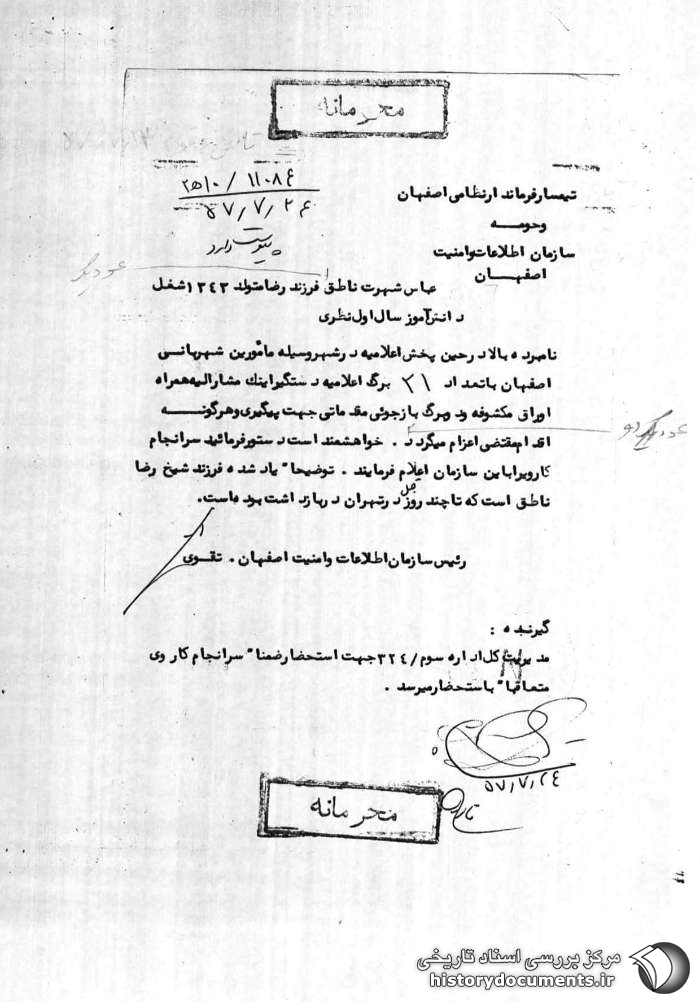 محرمانه
۲۵۱۰/۱۱۰۸۴
۵۷/۷/۲۴
پیوست دارد
تیمسار فرماندار نظامی اصفهان
وحومه
سازمان اطلاعات وامنیت
اصفهان
عباس شهرت ناطق فرزند رضا متولد ۱۳۴۳ شغل
دانش آموز سال اول نظری
نامبرده بالا در حین پخش اعلامیه در شهر وسیله مأمورین شهربانی
اصفهان با تعداد ۲۱ برگ اعلامیه دستگیر اینک مشارالیه همراه
اوراق مکشوفه ودوبرگ بازجوئی مقدماتی جهت پیگیری وهرگونه
اقدام مقتضی اعزام میگردد. خواهشمند است دستور فرمائید سرانجام
کار ویرا باین سازمان اعلام فرمایند. توضیحا" یاد شده فرزند شیخ رضا
ناطق است که تا چند روز قبل در تهران در بازداشت بوده است.
رئیس سازمان اطلاعات وامنیت اصفهان. تقوی
گیرنده:
مدیریت کل اداره سوم/۳۲۴ جهت استحضار ضمنا" سرانجام کار وی
متعاقبا" باستحضار میرسد.
۵۷/۷/۲۴
محرمانه
مرکز بررسی اسناد تاریخی
historydocuments.ir